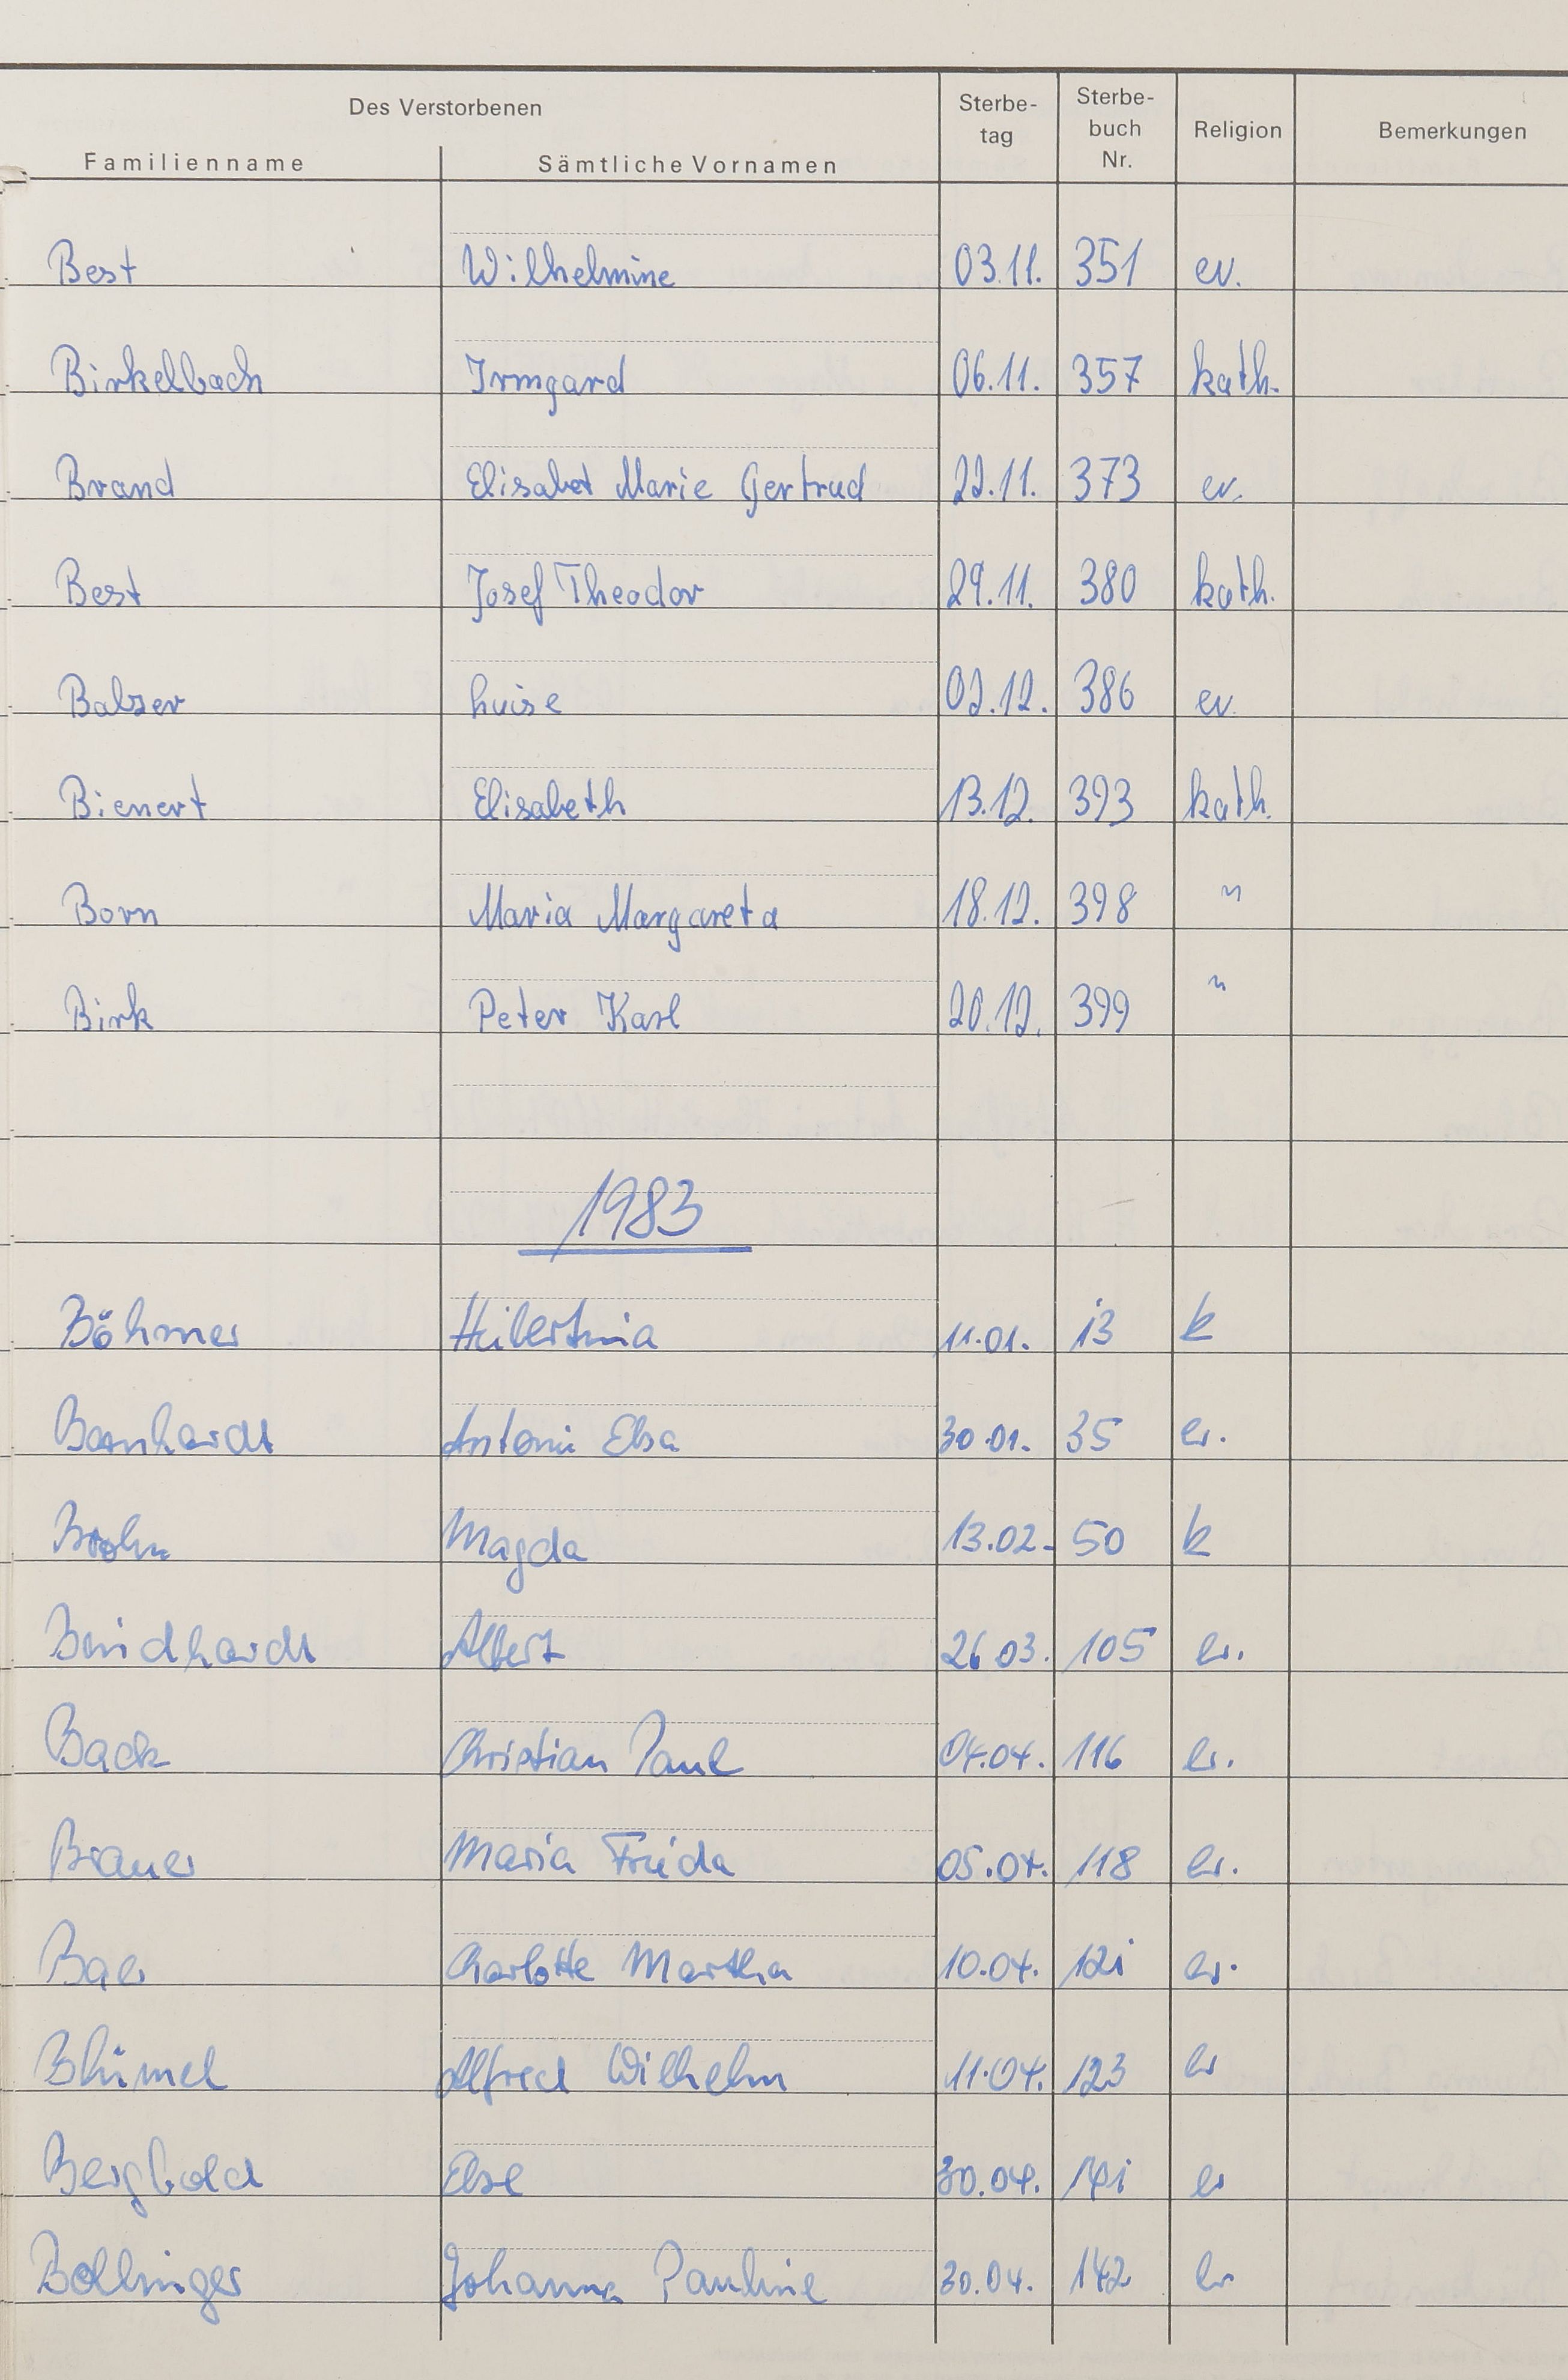 Des Verstorbenen
Familienname Sämtliche Vornamen Sterbe-tag Sterbe-buch Nr. Religion Bemerkungen
Best Wilhelmine 03.11. 351 ev.
Birkelbach Irmgard 06.11. 357 kath.
Brand Elisabet Marie Gertrud 22.11. 373 ev.
Best Josef Theodor 29.11. 380 kath.
Balzer Luise 02.12. 386 ev.
Bienert Elisabeth 13.12. 393 kath.
Born Maria Margareta 18.12. 398 "
Birk Peter Karl 20.12. 399 "
1983
Böhmer 11.01. 13 k
Antonie Elsa 30.01. 35 ev.
Magda 13.02. 50 k
Albert 26.03. 105 ev.
Back Christian Paul 04.04. 116 ev.
Brauer Maria Frieda 05.04. 118 ev.
Baer Charlotte Martha 10.04. 121 ev.
Blümel Alfred Wilhelm 11.04. 123 ev
Bergbold Else 30.04. 141 ev
Bollinger Johanna Pauline 30.04. 142 ev